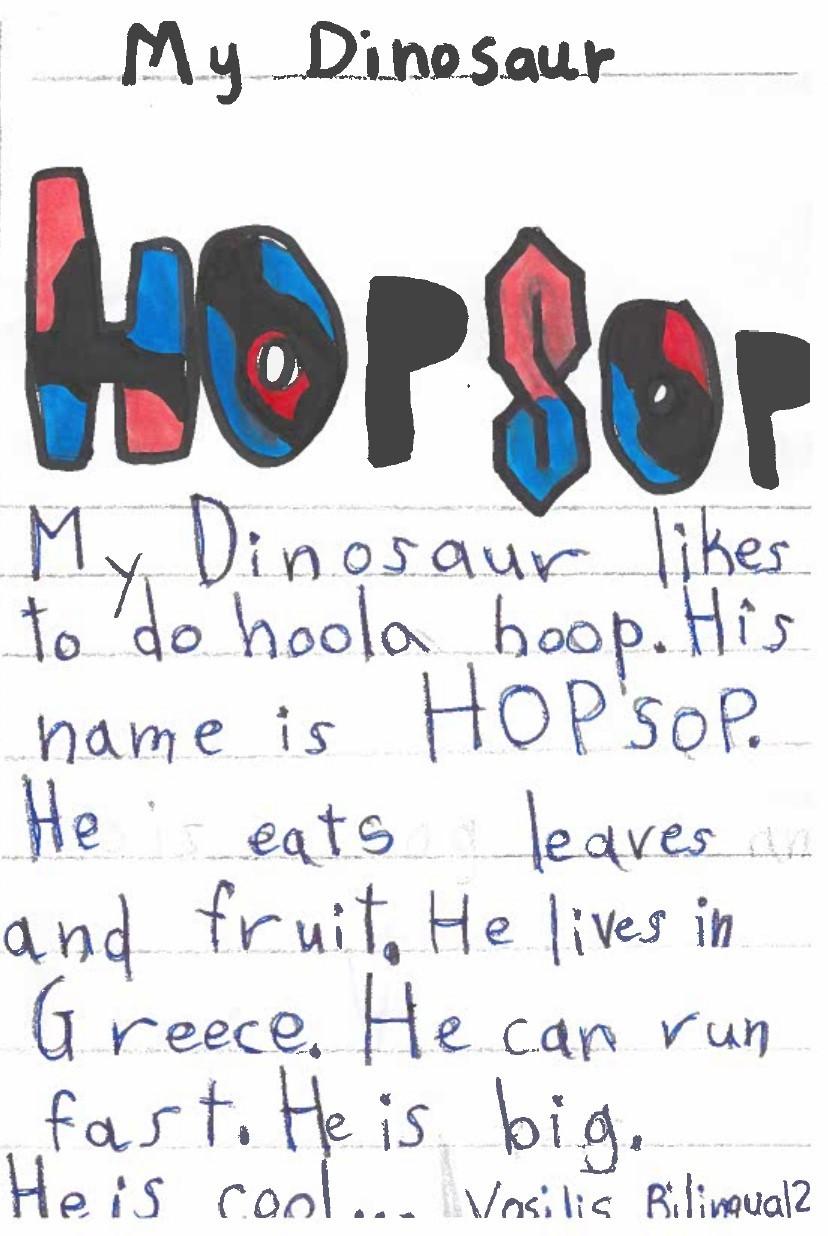 My Dinosaur
HOPSOP
My Dinosaur likes
to do hoola hoop. His
name is HOP'SOP.
He eats leaves
and fruit. He lives in
Greece. He can run
fast. He is big.
He is cool... Vasilis Bilingual2